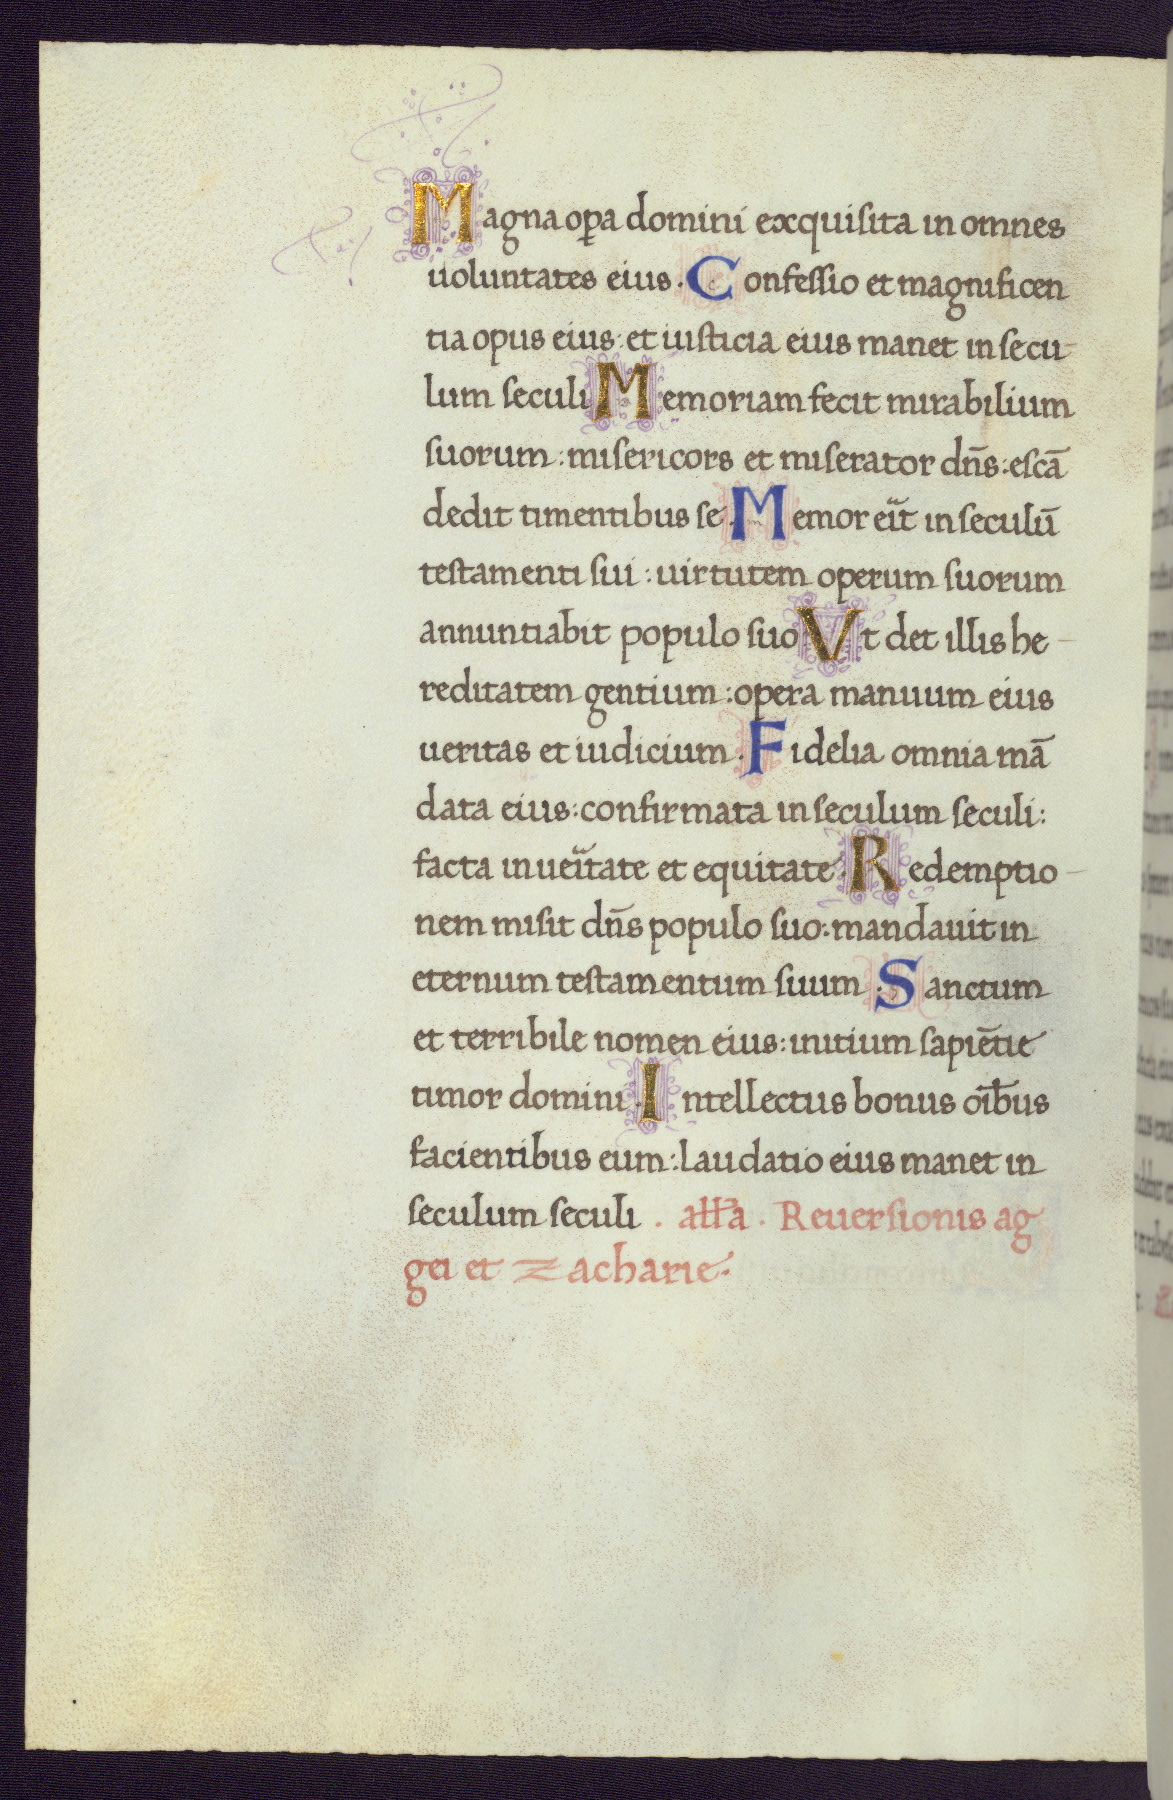 Magna opa domini exquisita in omnes
uoluntates eius. Confessio et magnificen
tia opus eius: et iusticia eius manet in secu
lum seculi Memoriam fecit mirabilium
suorum: misericors et miserator dn̄s: escā
dedit timentibus se. Memor eit in seculū
testamenti sui: uirtutem operum suorum
annuntiabit populo suo Vt det illis he-
reditatem gentium: opera manuum eius
ueritas et iudicium. Fidelia omnia mā
data eius: confirmata in seculum seculi:
facta in ueitate et equitate. Redemptio-
nem misit dn̄s populo suo: mandauit in
eternum testamentum suum. Sanctum
et terribile nomen eius: initium sapiētie
timor domini. Intellectus bonus oib̄us
facientibus eum: laudatio eius manet in
seculum seculi. all̄a. Reuersionis ag
gei et Zacharie.